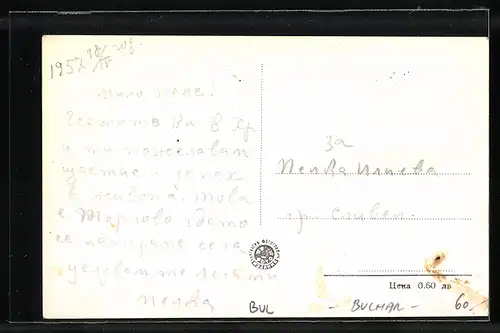 1957
Мило Пепе.
Честита
и ти пожелавам
щастие и успех
в живота. Това
е Търново където
се намираме сега
целувам те
Пенка
за
Пенка Илиева
гр. Сливен
Цена 0.60 лв
BUL
- BULHAR -
60.-